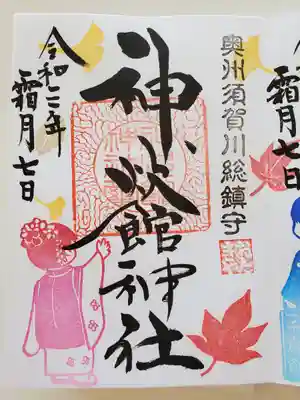 奥州須賀川総鎮守
神炊館神社
令和二年
霜月七日
霜月七日